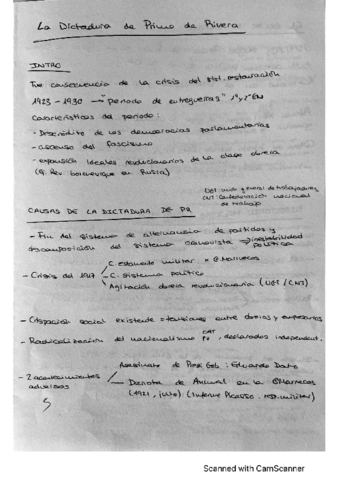 La Dictadura de Primo de Rivera
INTRO
Fue consecuencia de la crisis del sist. restauración
1923 - 1930 → "Periodo de entreguerras" 1ª y 2ª GM
Características del periodo:
- Descrédito de las democracias parlamentarias
- ascenso del fascismo
- expansión ideales revolucionarios de la clase obrera
(ej. Rev. bolchevique en Rusia)
UGT: unión general de trabajadores
CNT: Confederación nacional
de trabajo
CAUSAS DE LA DICTADURA DE PR
- Fin del sistema de alternancia de partidos y
descomposición del sistema canovista → inestabilidad
política
- Crisis del 1917
C. estamento militar x GMarruecos
C. sistema político
Agitación obrera revolucionaria (UGT / CNT)
- Crispación social existente → tensiones entre obreros y empresarios
- Radicalización del nacionalismo CAT PV, declarados independent.
- 2 acontecimientos
adversos
Asesinato de Pres. Gob: Eduardo Dato
Derrota de Annual en la GMarruecos
(1921, julio) (Informe Picasso: resp. militar)
Scanned with CamScanner